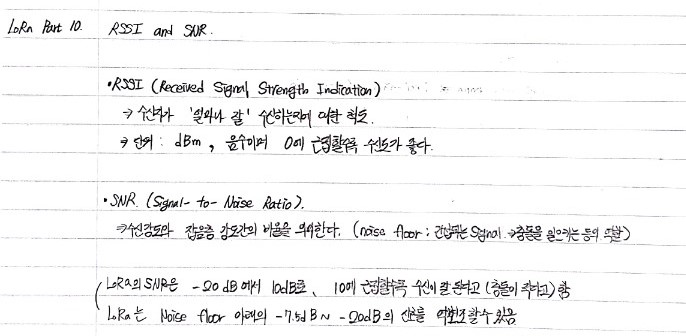 LoRa Part 10. RSSI and SNR.
• RSSI (Received Signal Strength Indication)
→ 수신자가 '얼마나 잘' 수신하는지에 대한 척도.
→ 단위 : dBm, 음수이며 0에 근접할수록 수신도가 좋다.
• SNR. (Signal-to-Noise Ratio).
→ 수신강도와 잡음층 강도간의 비율을 의미한다. (noise floor : 간섭되는 Signal → 충돌을 일으키는 등의 역할)
LoRa의 SNR은 -20 dB에서 10dB로, 10에 근접할수록 수신이 잘 된다고 (충돌이 적다고) 함
LoRa는 Noise floor 아래의 -7.5dB ~ -20dB의 신호를 할 수 있음